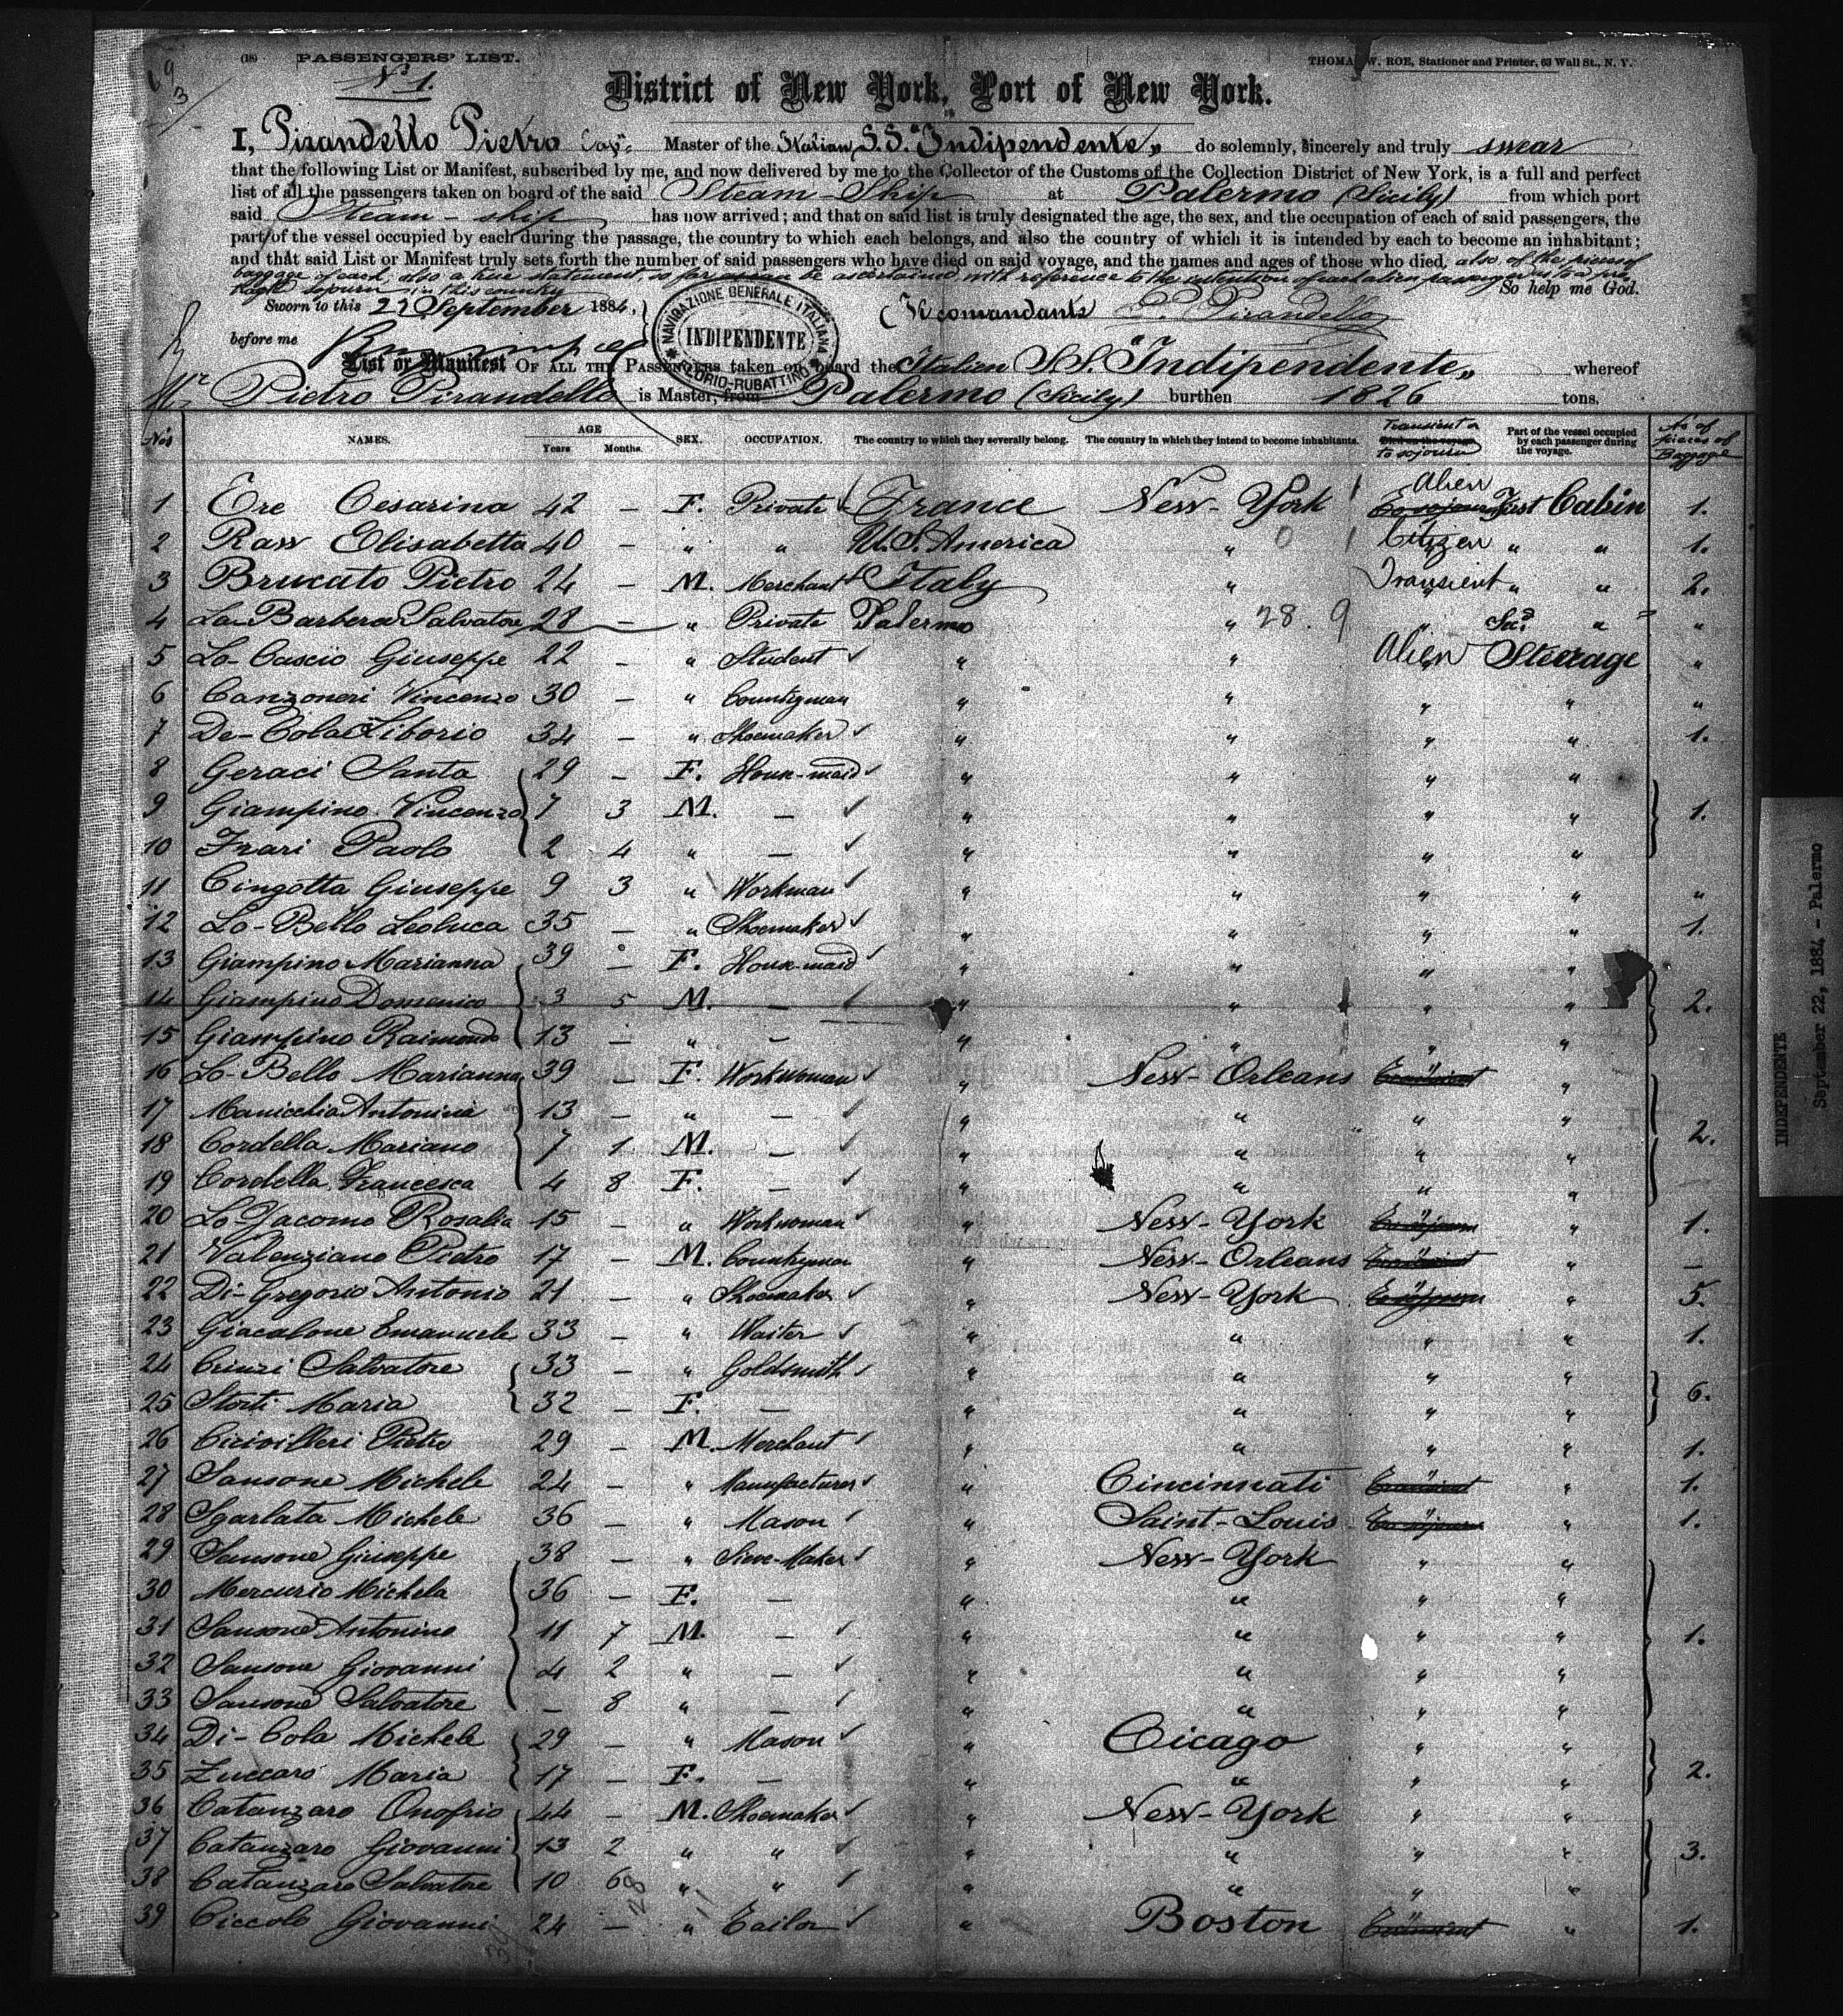 (18) PASSENGERS' LIST.
THOMAS W. ROE, Stationer and Printer, 63 Wall St., N. Y.
No 1.
District of New York, Port of New York.
I, Pirandello Pietro Cap. Master of the Italian S.S. "Indipendente" do solemnly, sincerely and truly swear
that the following List or Manifest, subscribed by me, and now delivered by me to the Collector of the Customs of the Collection District of New York, is a full and perfect
list of all the passengers taken on board of the said Steam-Ship at Palermo (Sicily) from which port
said Steam-ship has now arrived; and that on said list is truly designated the age, the sex, and the occupation of each of said passengers, the
part of the vessel occupied by each during the passage, the country to which each belongs, and also the country of which it is intended by each to become an inhabitant;
and that said List or Manifest truly sets forth the number of said passengers who have died on said voyage, and the names and ages of those who died, also of the pieces of
baggage of each, also a true statement, so far as can be ascertained with reference to the intention of each alien passenger as to a pro
tracted sojourn in this country So help me God.
Sworn to this 22 September 1884,
Il comandante P. Pirandello
before me
NAVIGAZIONE GENERALE ITALIANA INDIPENDENTE FLORIO-RUBATTINO
List or Manifest OF ALL THE PASSENGERS taken on board the Italian S.S. "Indipendente" whereof
Mr Pietro Pirandello is Master, from Palermo (Sicily) burthen 1826 tons.
Nos NAMES. AGE Years Months. SEX. OCCUPATION. The country to which they severally belong. The country in which they intend to become inhabitants. Died on the voyage Transient or to sojourn Part of the vessel occupied by each passenger during the voyage. No of pieces of Baggage
1 Ere Cesarina 42 — F. Private France New-York Alien First Cabin 1.
2 Rass Elisabetta 40 — " " U.S. America " Citizen " " 1.
3 Brucato Pietro 24 — M. Merchant Italy " Transient " " 2.
4 La-Barbera Salvatore 28 — " Private Palermo " 28.9 " " "
5 Lo-Cascio Giuseppe 22 — " Student " " Alien Steerage "
6 Canzoneri Vincenzo 30 — " Countryman " " " " "
7 De-Cola Liborio 34 — " Shoemaker " " " " 1.
8 Geraci Santa 29 — F. House-maid " " " "
9 Giampino Vincenzo 7 3 M. — " " " " 1.
10 Frari Paolo 2 4 " — " " " "
11 Cingotta Giuseppe 9 3 " Workman " " " " "
12 Lo-Bello Leoluca 35 — " Shoemaker " " " " 1.
13 Giampino Marianna 39 — F. House-maid " " " "
14 Giampino Domenico 3 5 M. — " " " " 2.
15 Giampino Raimondo 13 — " — " " " "
16 Lo-Bello Marianna 39 — F. Workwoman " New-Orleans Transient "
17 Manicchia Antonina 13 — " — " " " "
18 Cordella Mariano 7 1 M. — " " " " 2.
19 Cordella Francesca 4 8 F. — " " " "
20 Lo-Jacomo Rosalia 15 — " Workwoman " New-York To sojourn " 1.
21 Valenziano Pietro 17 — M. Countryman " New-Orleans Transient " —
22 Di-Gregorio Antonio 21 — " Shoemaker " New-York To sojourn " 5.
23 Giacalone Emanuele 33 — " Waiter " " " " 1.
24 Crinzi Salvatore 33 — " Goldsmith " " " "
25 Storti Maria 32 — F. — " " " " 6.
26 Cicivilleri Pietro 29 — M. Merchant " " " " 1.
27 Sansone Michele 24 — " Manufacturer " Cincinnati Transient " 1.
28 Sgarlata Michele 36 — " Mason " Saint-Louis To sojourn " 1.
29 Sansone Giuseppe 38 — " Sieve-Maker " New-York " "
30 Mercurio Michela 36 — F. — " " " "
31 Sansone Antonino 11 7 M. — " " " " 1.
32 Sansone Giovanni 4 2 " — " " " "
33 Sansone Salvatore — 8 " — " " " "
34 Di-Cola Michele 29 — " Mason " Cicago " "
35 Zuccaro Maria 17 — F. — " " " " 2.
36 Catanzaro Onofrio 44 — M. Shoemaker " New-York " "
37 Catanzaro Giovanni 13 2 " " " " " " 3.
38 Catanzaro Salvatore 10 6 " " " " " "
39 Ciccolo Giovanni 24 — " Tailor " Boston Transient " 1.
INDIPENDENTE
September 22, 1884 - Palermo